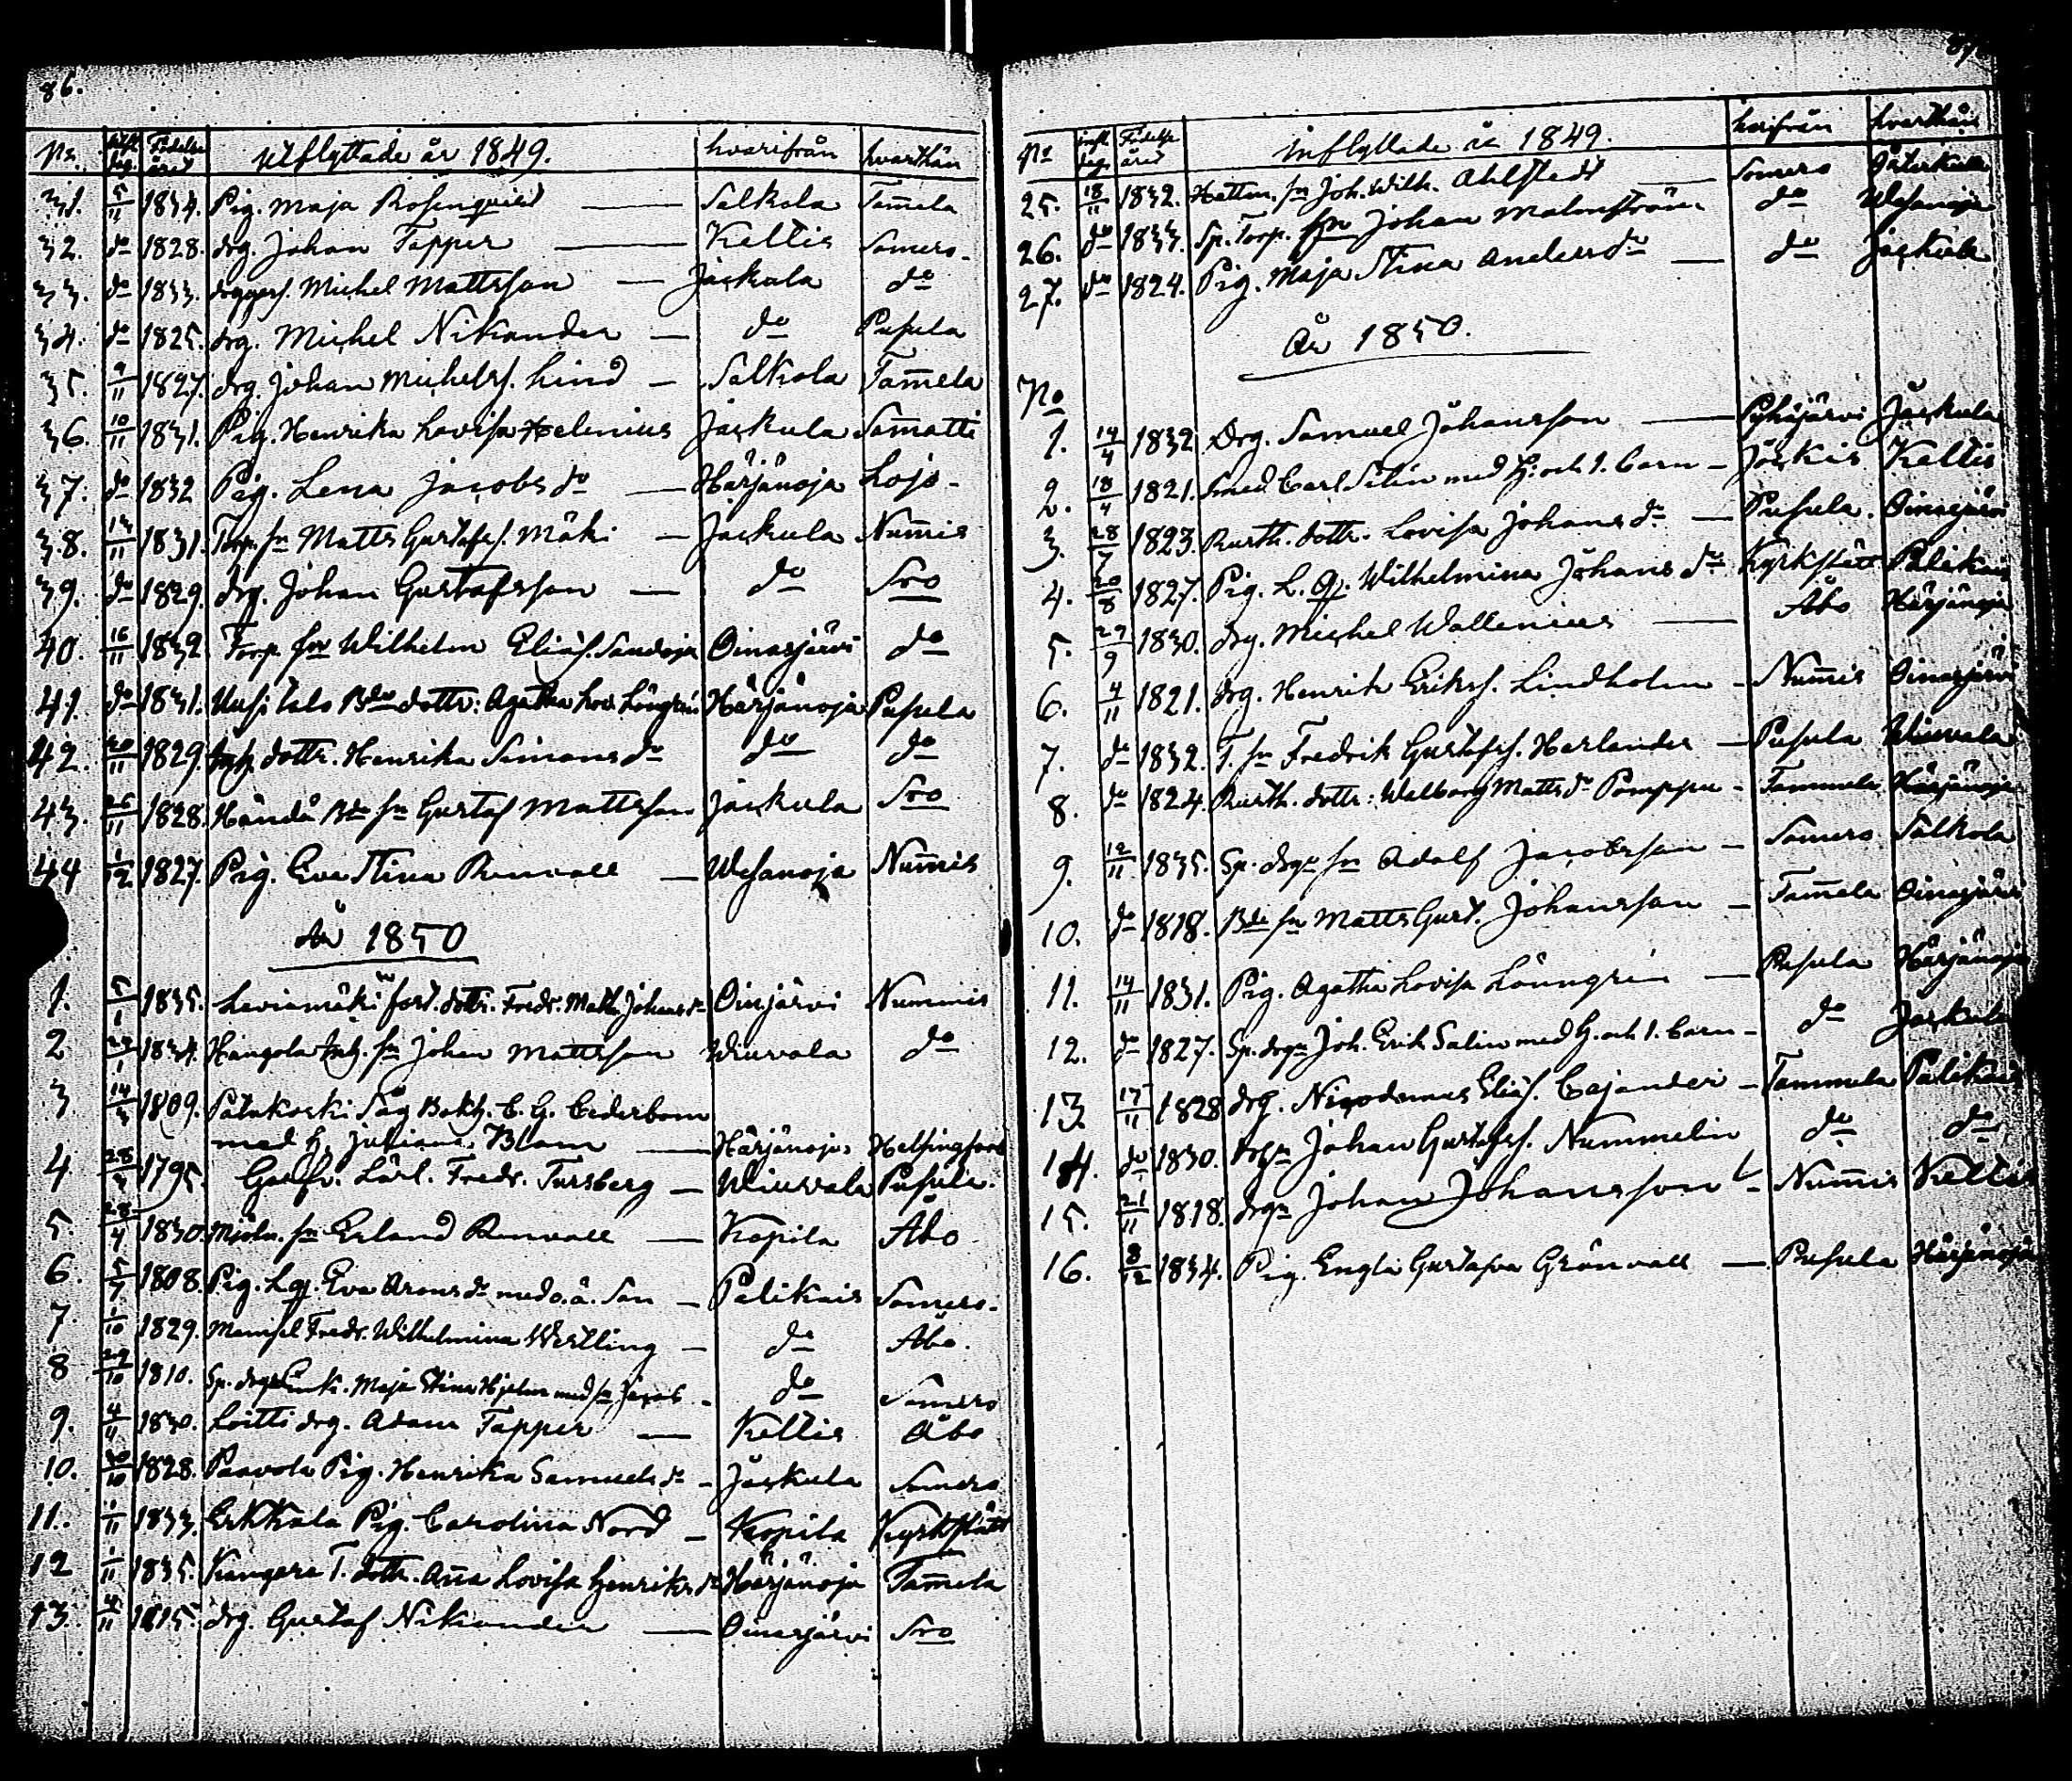 86.
No. Utfl. dag. Födelse året Utflyttade år 1849. hvarifrån hvarthän
31. 5/11 1834. Pig. Maja Rosenqvist — Salkola Tam̄ela
32. do 1828. drg. Johan Tapper — Keltis Somero
33. do 1833. Michel Mattsson — Jäskula do
34. do 1825. drg. Michel Nikander — do Pusula
35. 9/11 1827. drg. Johan Michelss. Lind — Salkola Tam̄ela
36. 10/11 1831. Pig. Henrika Lovisa Helenius Jäskula Sam̄atti
37. do 1832 Pig. Lena Jacobs dr — Härjänoja Lojo
38. 13/11 1831. Torp. sn Matts Gustafss. Mäki — Jäskula Num̄is
39. do 1829. drg. Johan Gustafsson — do Sro
40. 16/11 1832 Torp sn Wilhelm Eliäs. Sandoja Oinasjärvi do
41. do 1831. Uusi talo Bde dottr: Agatha Lov. Löngrén Härjänoja Pusula
42. 20/11 1829. Inh. dottr. Henrika Simons dr do do
43. 26/11 1828. Händä Bde sn Gustaf Mattsson Jäskula Sro
44 1/12 1827. Pig. Eva Stina Renvall — Wesanoja Num̄is
År 1850
1. 5/1 1835. Leviemäki fost. dottr. Fredr. Math. Johans dr Oinjärvi Nummis
2 23/1 1834. Hångola Inh. sn Johan Mattsson Wiuvala do
3 14/3 1809. Patakoski Såg Bokh. C. G. Cederbom
med h. Juliana Blom — Härjänoja Helsingfors
4 28/3 1795. Gulfv. Lärl. Fredr. Tursberg — Wiuvala Pusula.
5. 28/4 1830. Mjöln. sn Erland Renvall — Kopila Åbo
6. 5/7 1808. Pig. Lqr. Eva Arons dr med o.ä. Son — Palikais Somero.
7. 1/10 1829. Mamsel Fredr. Wilhelmina Wertling — do Åbo.
8 29/10 1810. Sp. drgs Enk. Maja Stina Hjelm med sn Jacob do Somero
9. 4/11 1830. Loitti drg. Adam Tapper — Keltis Åbo
10. 30/10 1828. Paavola Pig. Henrika Samuels dr — Jäskula Somero
11. 1/11 1833. Erkkala Pig. Carolina Nord — Kopila Kyrkslätt
12 1/11 1835. Kangare T. dottr. An̄a Lovisa Henriks dr Härjänoja Tam̄ela
13. 4/11 1815. drg. Gustaf Nikander — Oinasjärvi Sro
87
No infl. dag. Födelse året Inflyttade år 1849. hvarifrån hvarthän
25. 18/11 1832. Hattm. sn Joh. Wilh. Ahlstedt — Somero
26. do 1833. Sp. Torp. sn Johan Malmström do Wesanoja
27. do 1824. Pig. Maja Stina Anders dr — do Jäskula
År 1850.
No
1. 14/4 1832 Drg. Samuel Johansson — Pyhäjärvi Jäskula
2. 18/4 1821. Smed Carl Silin med H. och 1. barn — Jockis Keltis
3. 28/7 1823. Rusth. dottr. Lovisa Johans dr — Pusula. Oinasjärvi
4. 20/8 1827. Pig. L. Q. Wilhelmina Johans dr Kyrkslätt Palikais
5. 29/9 1830. drg. Michel Wallenius — Åbo Härjänoja
6. 4/11 1821. drg. Henrik Erikss. Lindholm — Num̄is Oinasjärvi
7. do 1832. T. sn Fredrik Gustafss. Herlander — Pusula Wiuvala
8. do 1824. Rusth. dottr: Walborg Matts dr Pomppu — Tammela Härjänoja
9. 12/11 1835. Sp. drgs sn Adolf Jacobsson — Somero Salkola
10. do 1818. Bde sn Matts Gust. Johansson — Tam̄ela Oinasjärvi
11. 14/11 1831. Pig. Agatha Lovisa Lönngrén — Pusula Härjänoja
12. do 1827. Sp. drgn Joh. Erik Salin med H. och 1. barn — do Jäskula
13. 17/11 1828 drg. Nicodemus Eliäs. Cajander — Tammela Palikais
14. do 1830. drgn Johan Gustafss. Nummelin do do
15. 21/11 1818. drgn Johan Johansson — Num̄is Keltis
16. 8/12 1834. Pig. Engla Gustafva Grönvall — Pusula Härjänoja